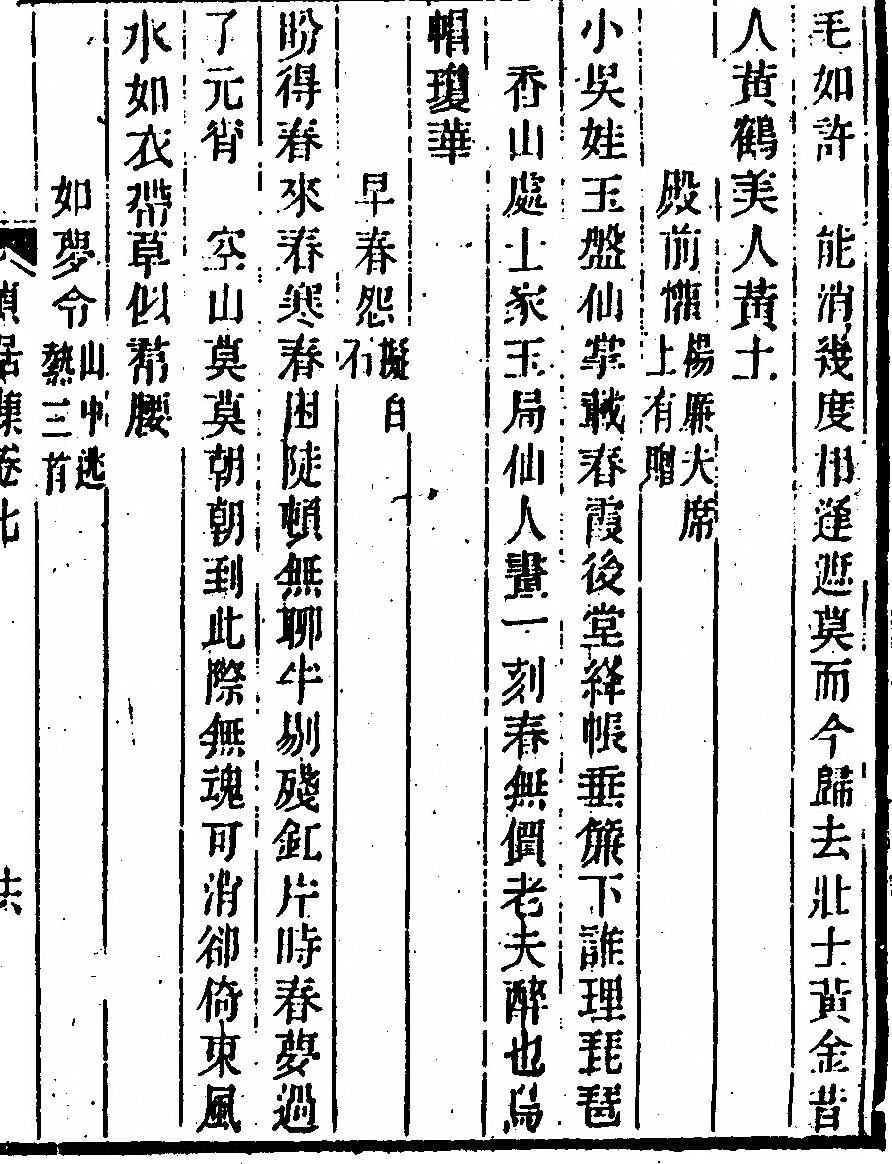 毛如許　能消幾度相逢遮莫而今歸去壯士黃金昔
人黃鶴美人黃土
殿前懽楊廉夫席上有贈
小吳娃玉盤仙掌載春霞後堂絳帳垂簾下誰理琵琶
香山處士家玉局仙人畫一刻春無價老夫醉也烏
帽瓊華
早春怨擬白石
盼得春來春寒春困陡頓無聊半剔殘釭片時春夢過
了元宵　空山莫莫朝朝到此際無魂可消卻倚東風
水如衣帶草似裙腰
如夢令山中逃熱三首
居集卷七